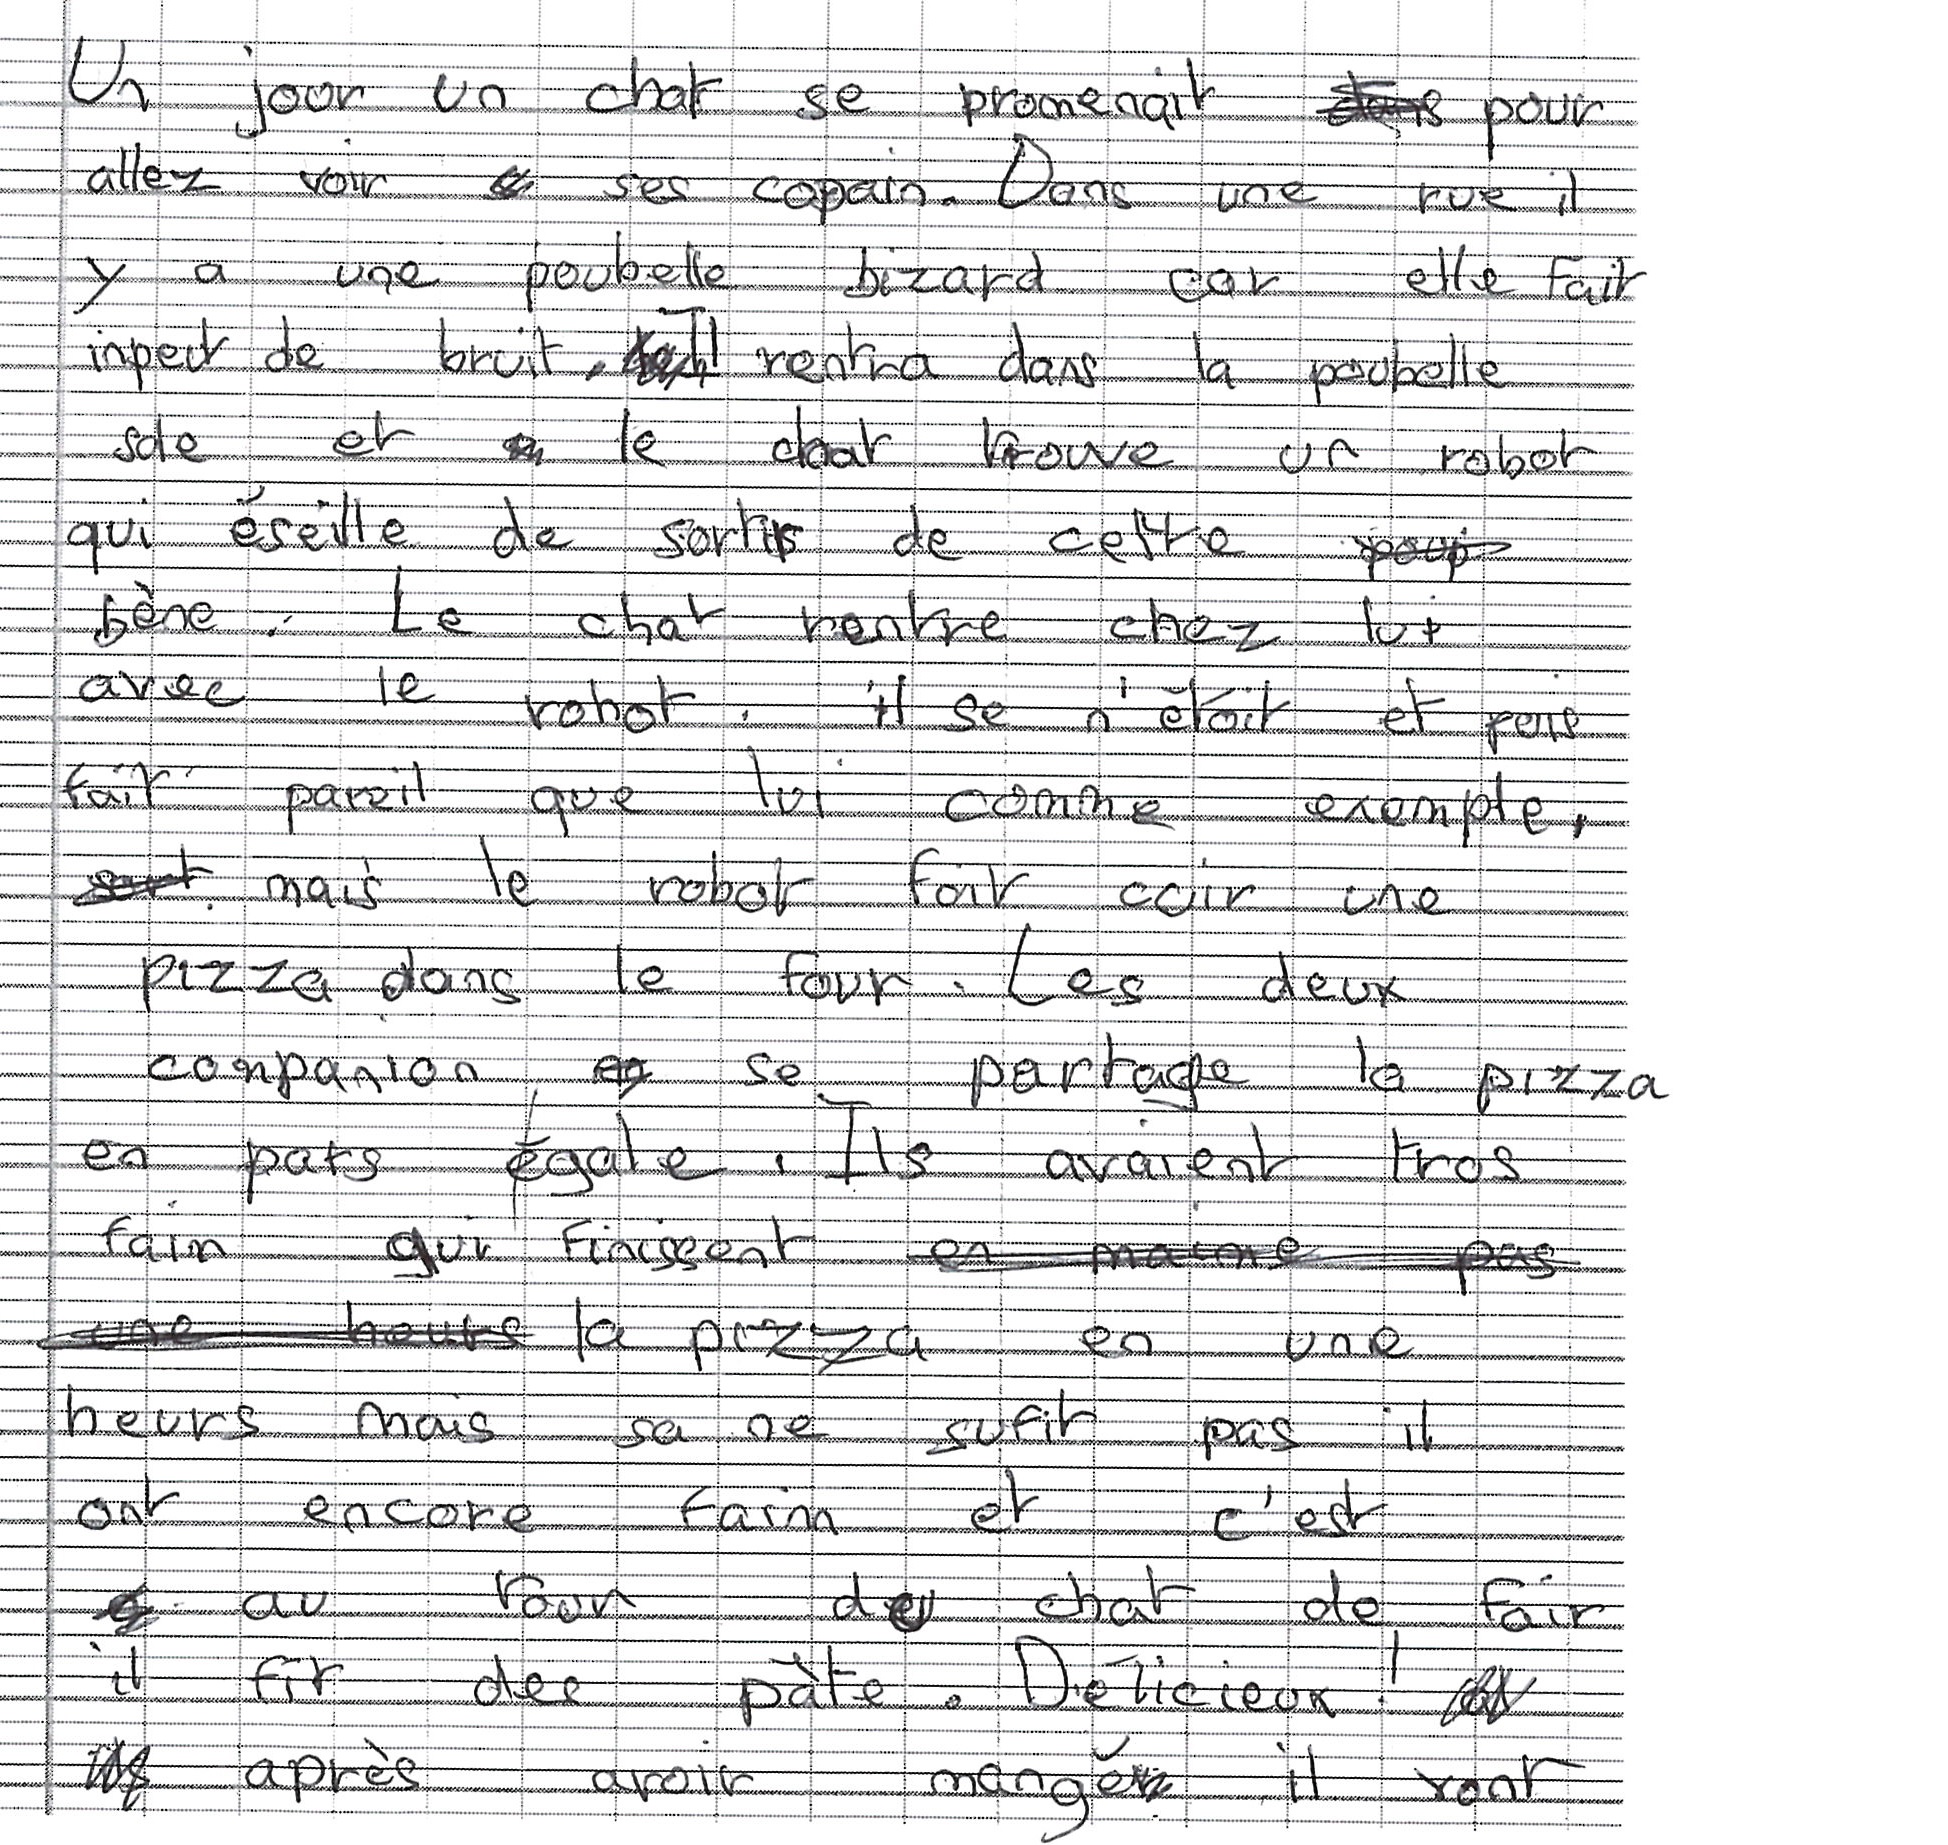 Un jour un chat se promenait pour
allez voir ses copain. Dans une rue il
y a une poubelle bizard car elle fait
inpect de bruit. Il rentra dans la poubelle
sale et le chat trouve un robot
qui éseille de sortir de cette
bène. Le chat rentre chez lui
avec le robot. il se n'étoit et pens
fait pareil que lui comme exemple,
mais le robot fair cuir une
pizza dans le four. Les deux
companion se partage la pizza
en pats égale. Ils avaient tros
faim qui finissent en maime pas
une heurs la pizza en une
heurs mais sa ne sufit pas il
ont encore faim et c'est
au tour du chat de fair
il fit des pâte. Délicieux !
après avoir mangé il vont